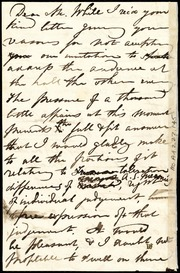 Dear Mr. White I rec'd your
kind letter giving your
reasons for not accepting
our invitation to
address the audience at
the hall the other eve.
The pressure of a thousand
little affairs at this moment
prevents the full & fit answer
that I would gladly make
to all the portions of it
relating to
differences of
of individual judgement &
expression of that
judgement. It would
be pleasant, & I doubt not
profitable to dwell on these